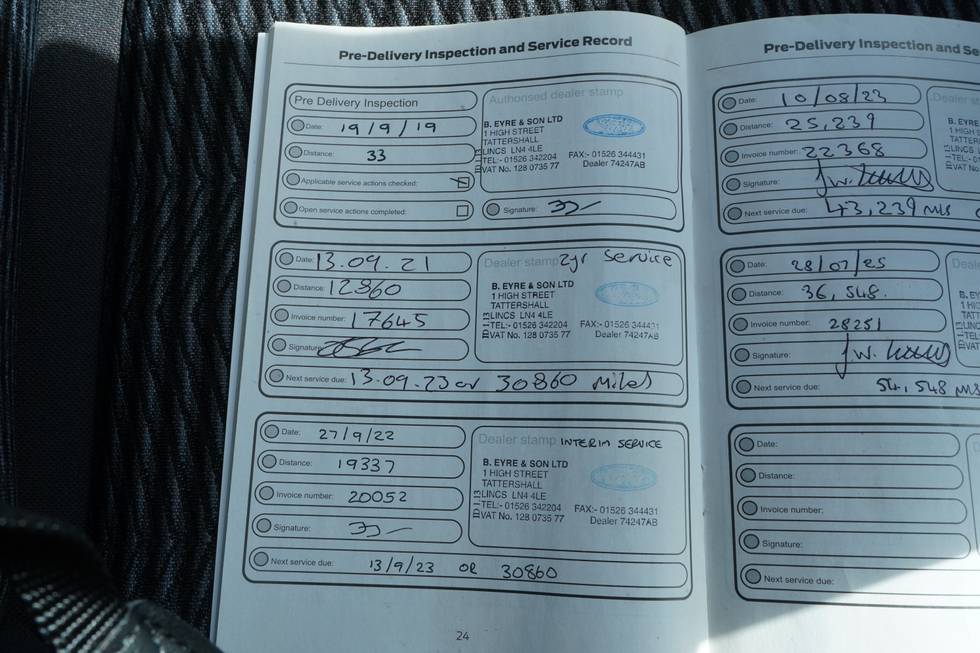 Pre-Delivery Inspection and Service Record
Pre Delivery Inspection
Date: 19/9/19
Distance: 33
Applicable service actions checked:
Open service actions completed:
Authorised dealer stamp
B. EYRE & SON LTD
1 HIGH STREET
TATTERSHALL
LINCS LN4 4LE
TEL:- 01526 342204 FAX:- 01526 344431
VAT No. 128 0735 77 Dealer 74247AB
Signature:
Date: 13.09.21
Distance: 12860
Invoice number: 17645
Signature:
Next service due: 13.09.23 or 30860 miles
Dealer stamp 2yr Service
B. EYRE & SON LTD
1 HIGH STREET
TATTERSHALL
LINCS LN4 4LE
TEL:- 01526 342204 FAX:- 01526 344431
VAT No. 128 0735 77 Dealer 74247AB
Date: 27/9/22
Distance: 19337
Invoice number: 20052
Signature:
Next service due: 13/9/23 OR 30860
Dealer stamp INTERIM SERVICE
B. EYRE & SON LTD
1 HIGH STREET
TATTERSHALL
LINCS LN4 4LE
TEL:- 01526 342204 FAX:- 01526 344431
VAT No. 128 0735 77 Dealer 74247AB
24
Pre-Delivery Inspection and Se
Date: 10/08/23
Distance: 25,239
Invoice number: 22368
Signature:
Next service due: 43,239 mls
Dealer
B. EYRE
1 HIGH
TATTE
LINCS
TEL:-
VAT N
Date: 28/07/25
Distance: 36,548.
Invoice number: 28251
Signature:
Next service due: 54,548 mls
Deale
B. EY
1 HIG
TATT
LINC
TEL:
VAT
Date:
Distance:
Invoice number:
Signature:
Next service due: